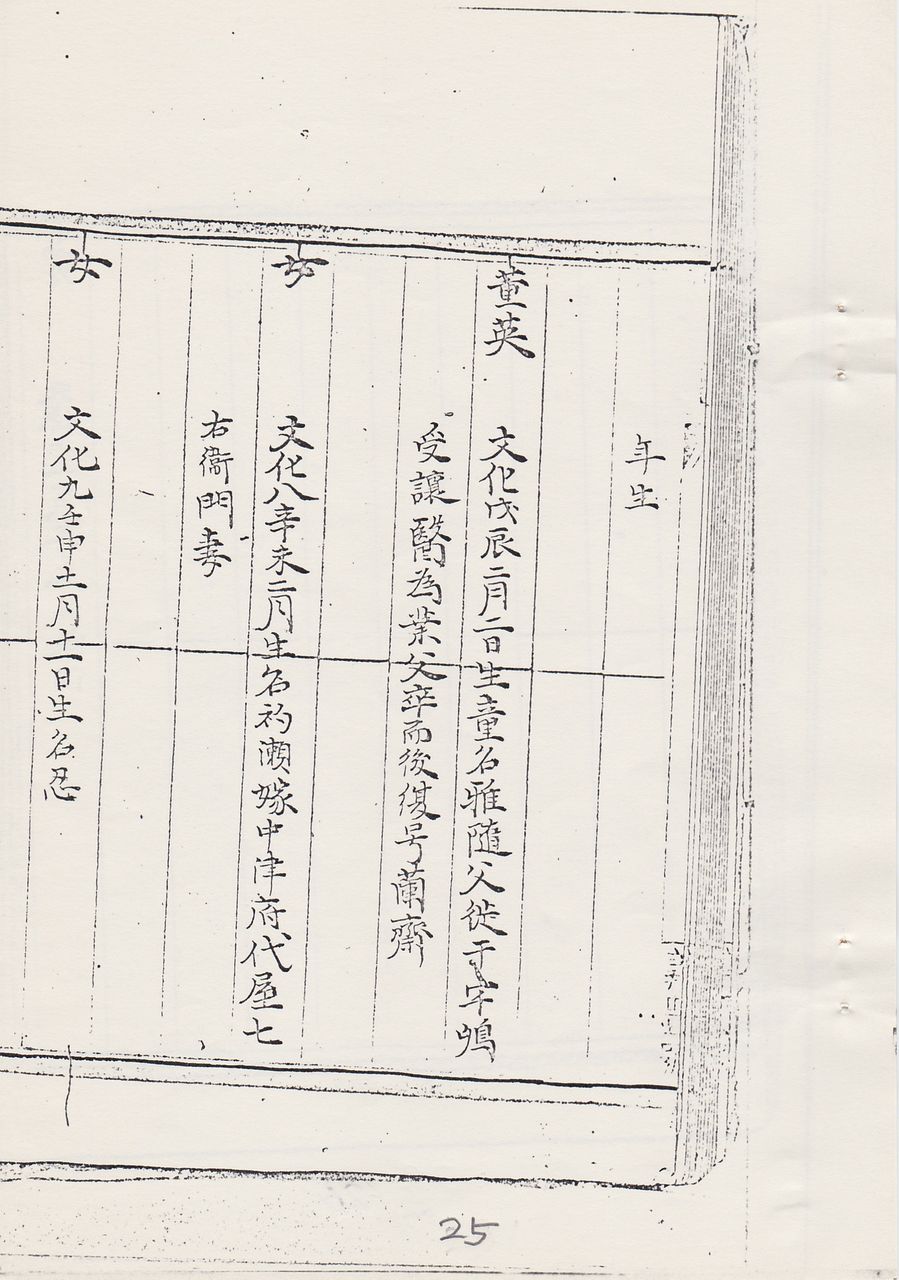 年生
董英
文化戊辰二月二日生童名雅隨父徙于宇嶋
受讓醫為業父卒而後復号蘭齋
女
文化八辛未二月生名初瀬嫁中津府代屋七
右衞門妻
女
文化九壬申十一月十一日生名忍
25